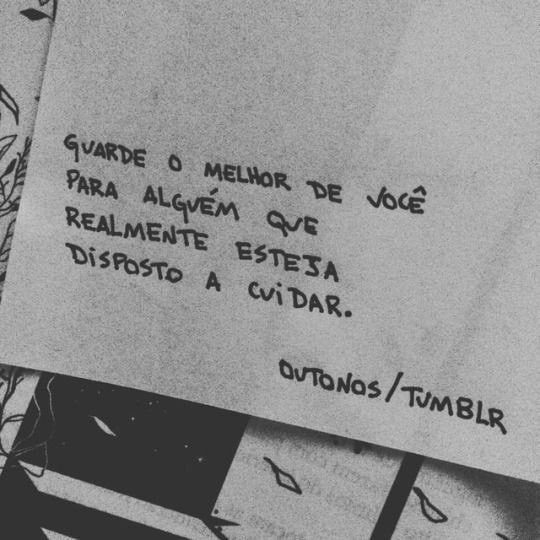 GUARDE O MELHOR DE VOCÊ
PARA ALGUÉM QUE
REALMENTE ESTEJA
DISPOSTO A CUIDAR.
OUTONOS/TUMBLR